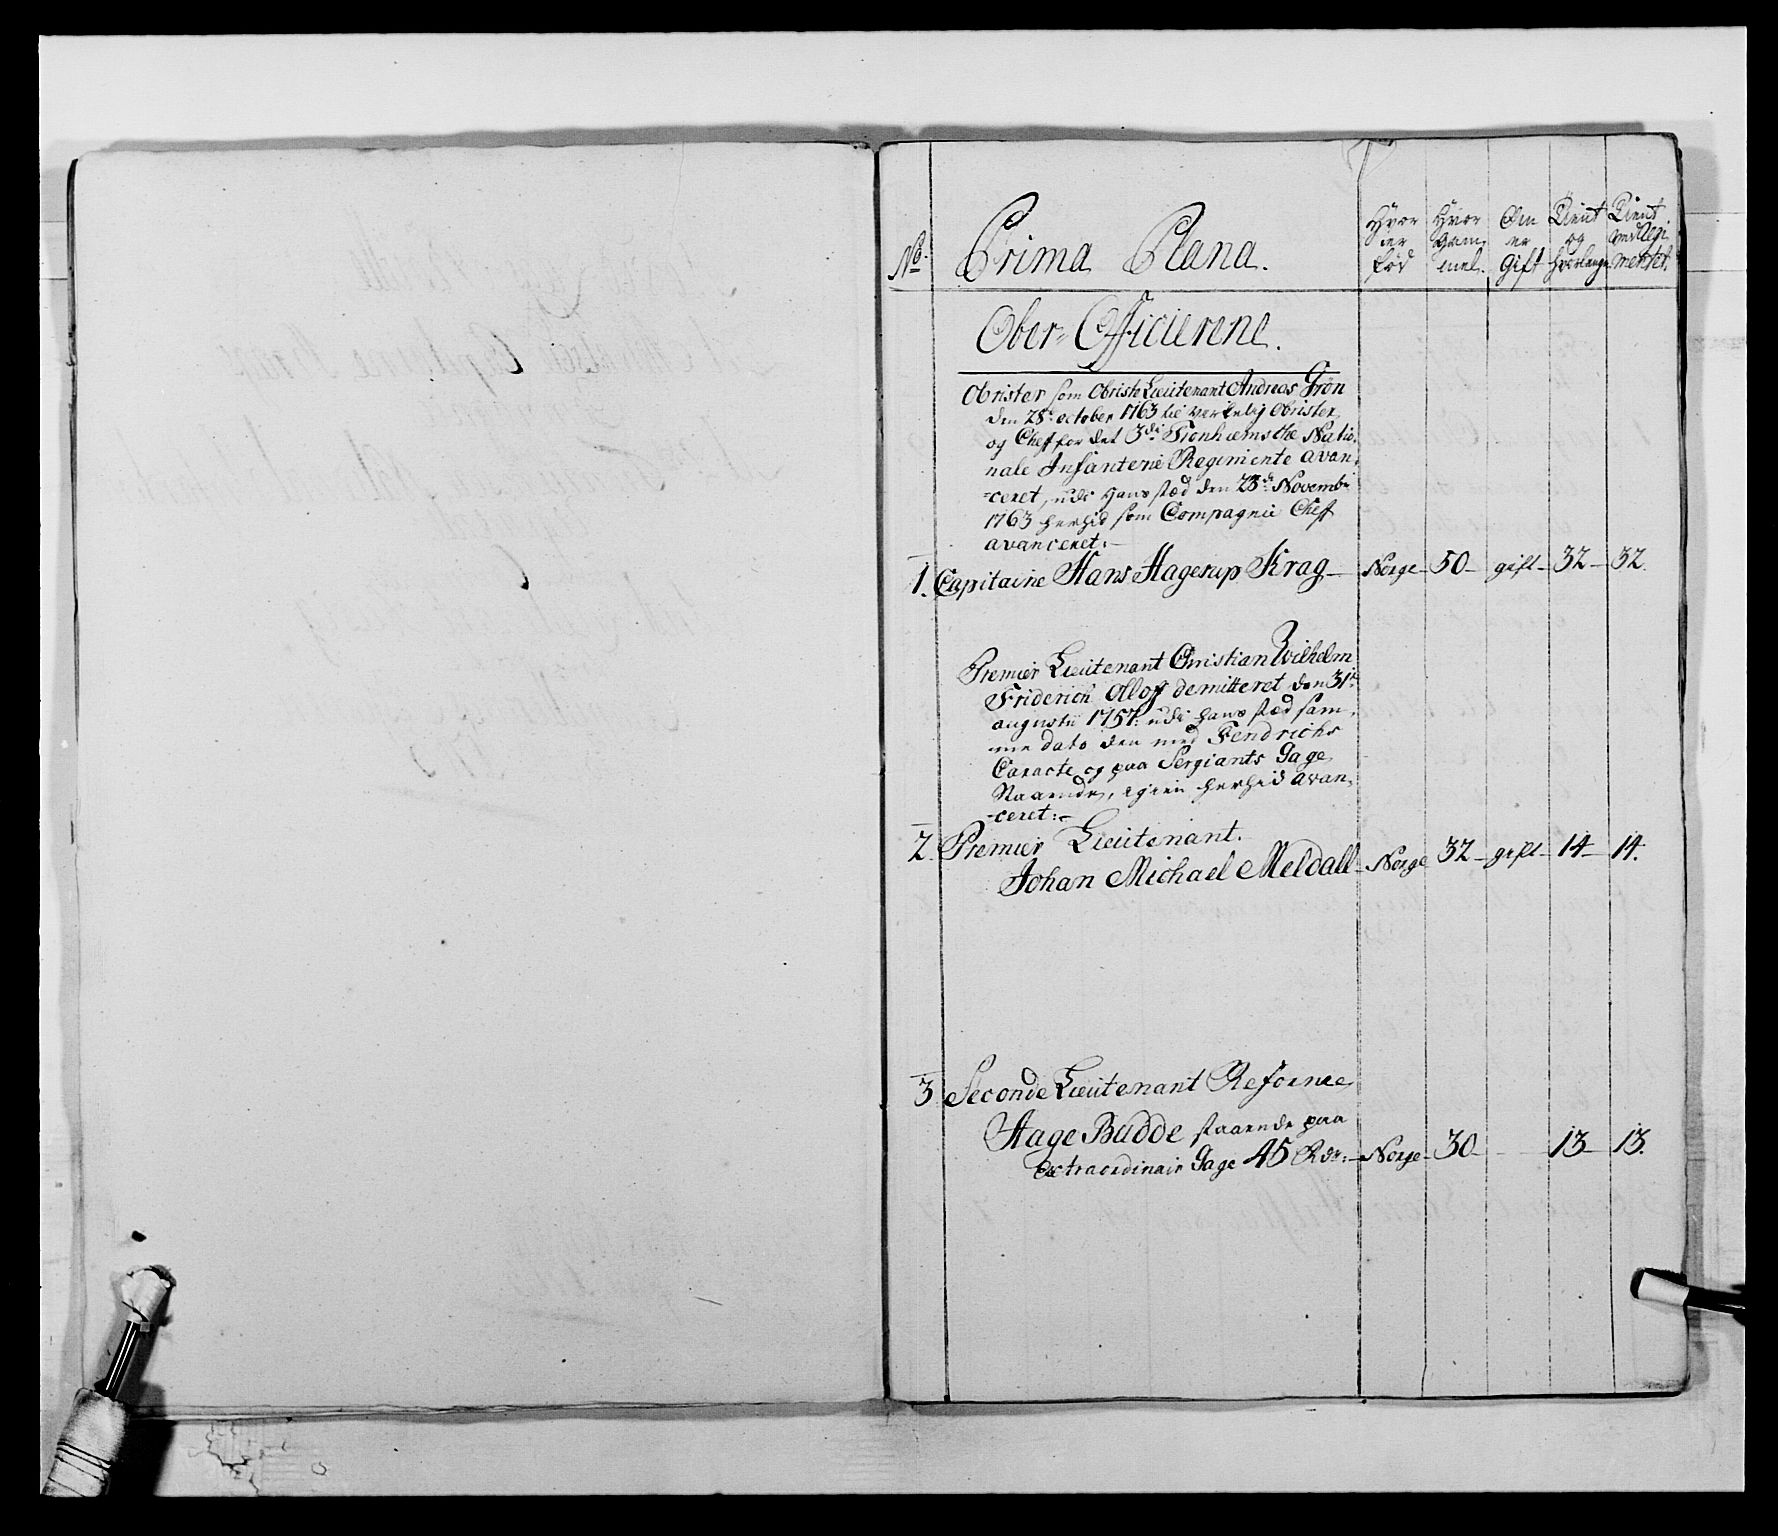 No. Prima Plana. Hvor er fød Hvor gam mel. Om er Gift Tient og hvorlænge Tient ved Regi mentet.
Ober-Officierene.
Obrister som Obriste Lieutenant Andreas Grön
den 28de october 1763 til verkelig Obrister
og Cheff for det 3die Tronhiemsche Natio-
nale Infanterie Regimente avan-
-ceret, udi Hans stæd den 23de Novembr
1763 herhid som Compagnie Cheff
avanceret:-
1. Capitaine Hans Hagerup Krag - Norge - 50 - gift - 32 - 32.
Premier Lieutenant Christian Wilhelm
Friderich Olloff demitteret den 31te
augustii 1757: udi hans stæd sam-
me dato den med Fendrichs
Caracte og paa Sergiants Gage
Staaende, igien herhid avan-
-ceret:-
2. Premier Lieutenant.
Johan Michael Meldall - Norge 32 - gift - 14 - 14.
3 Seconde Lieutenant Reforme
Hage Budde staaende paa
Extraordinair Gage 45 Rdr: - Norge - 30 - - 13 - 13.